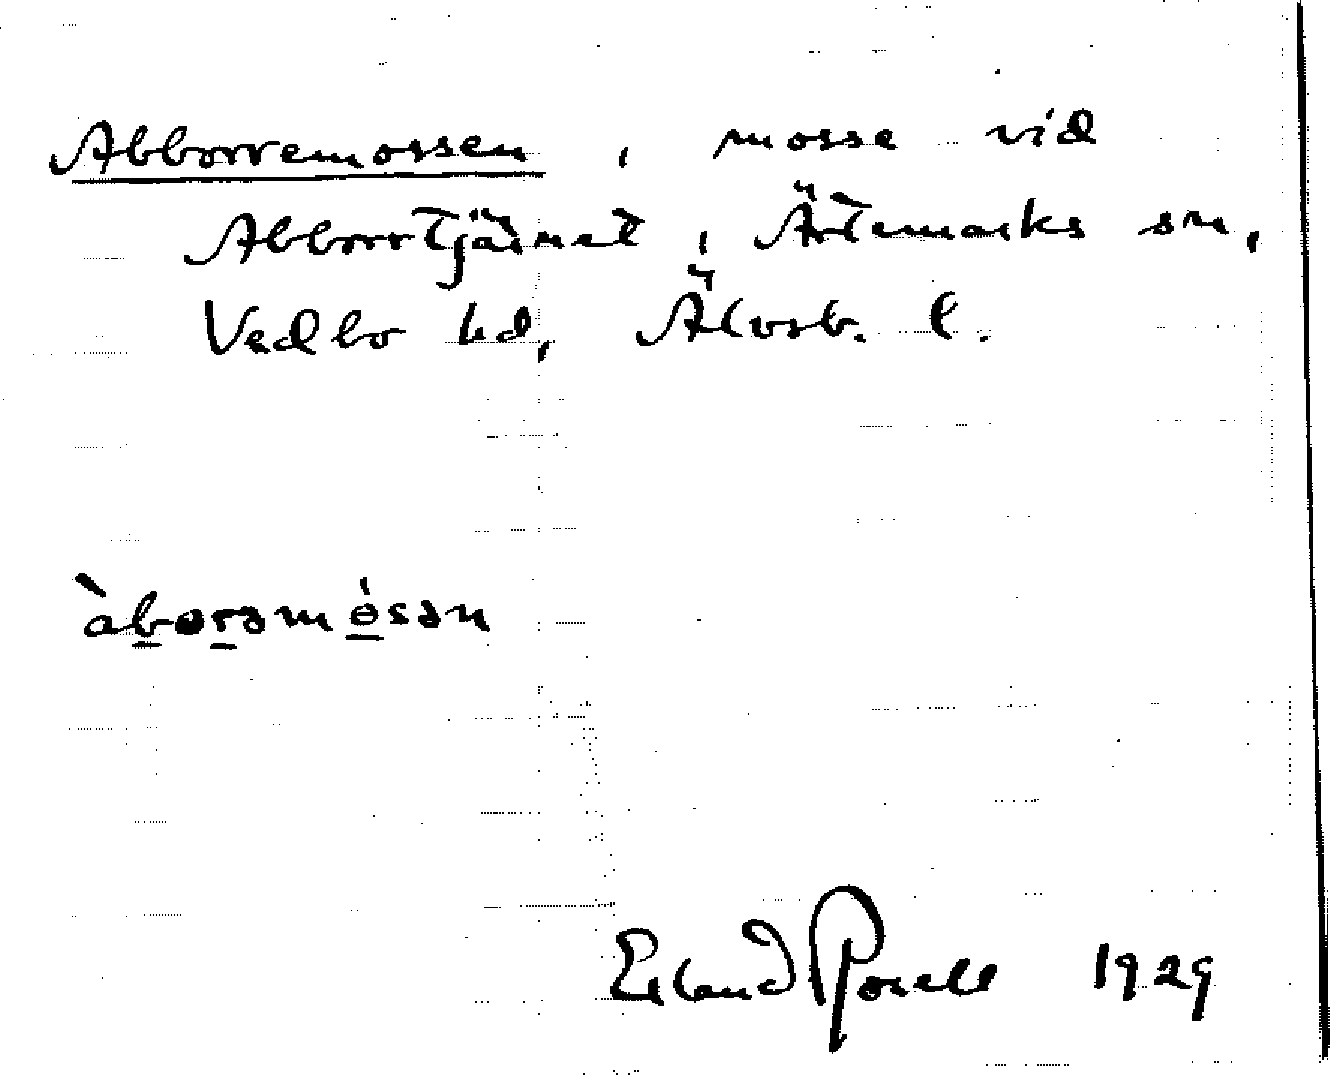 Abborremossen, mosse vid
Abborrtjärnet, Ärtemarks sn,
Vedbo hd, Älvsb. l.
àborəmósən
Erland Rosell 1929